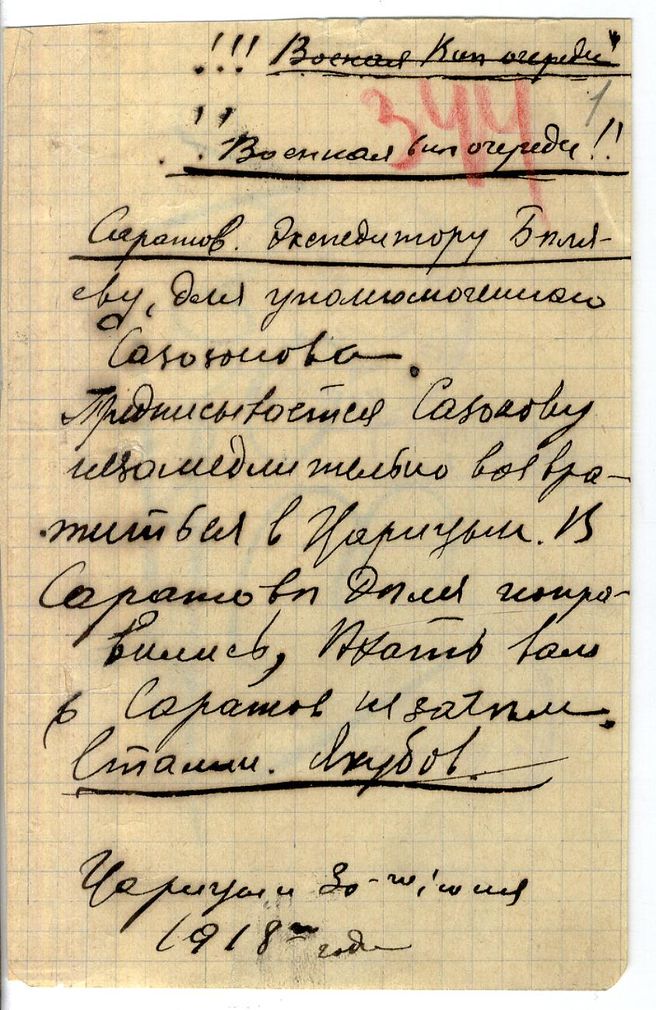 !!! Военная вне очереди"
344 1
!! Военная вне очереди!!
Саратов. Экспедитору Беля-
еву, для уполномоченного
Сазонова.
Предписывается Сазонову
незамедлительно возвра-
титься в Царицын. В
Саратове дела попра-
вились, ехать вам
в Саратов незачем.
Сталин. Якубов.
Царицын 30-го іюня
1918 го года